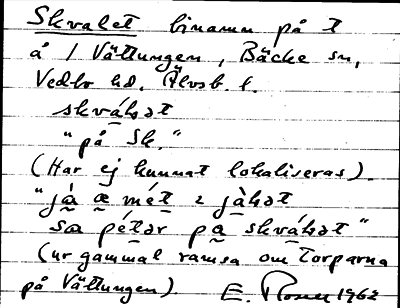 Skvalet binamn på t
å / Vättungen, Bäcke sn,
Vedbo hd. Älvsb. l.
skválət
"på Sk."
(Har ej kunnat lokaliseras).
"jà æ mét i jàlət
sa pétər pa skválət"
(ur gammal ramsa om torparna
på Vättungen) E. Rosen 1962